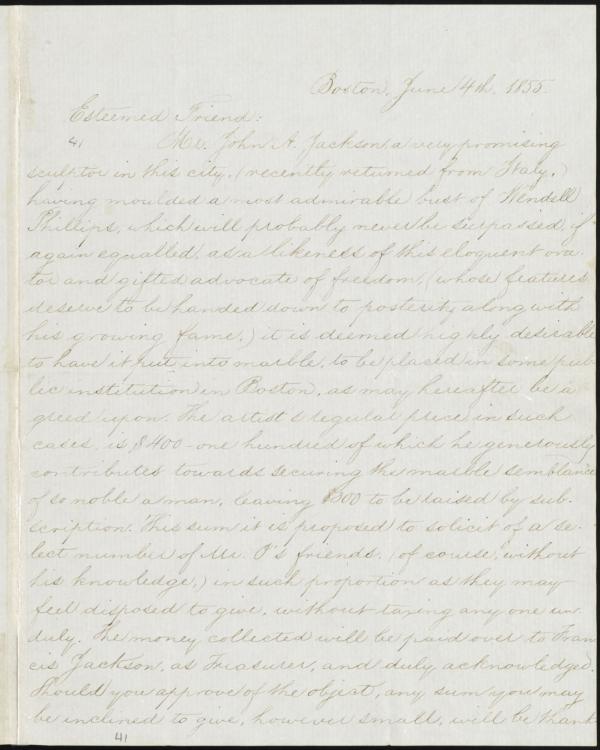 Boston, June 4th, 1855.
Esteemed Friend:
41
Mr. John A. Jackson, a very promising
sculptor in this city, (recently returned from Italy,)
having moulded a most admirable bust of Wendell
Phillips, which will probably never be surpassed, if
again equalled, as a likeness of this eloquent ora-
tor and gifted advocate of freedom, (whose features
deserve to be handed down to posterity along with
his growing fame,) it is deemed highly desirable
to have it put into marble, to be placed in some pub-
lic institution in Boston, as may hereafter be a-
greed upon. The artist's regular price, in such
cases, is $400 - one hundred of which he generously
contributes towards securing the marble semblance
of so noble a man, leaving $300 to be raised by sub-
scription. This sum it is proposed to solicit of a se-
lect number of Mr. P's friends, (of course, without
his knowledge,) in such proportion as they may
feel disposed to give, without taxing any one un-
duly. The money collected will be paid over to Fran-
cis Jackson, as Treasurer, and duly acknowledged.
Should you approve of the object, any sum you may
be inclined to give, however small, will be thank-
41